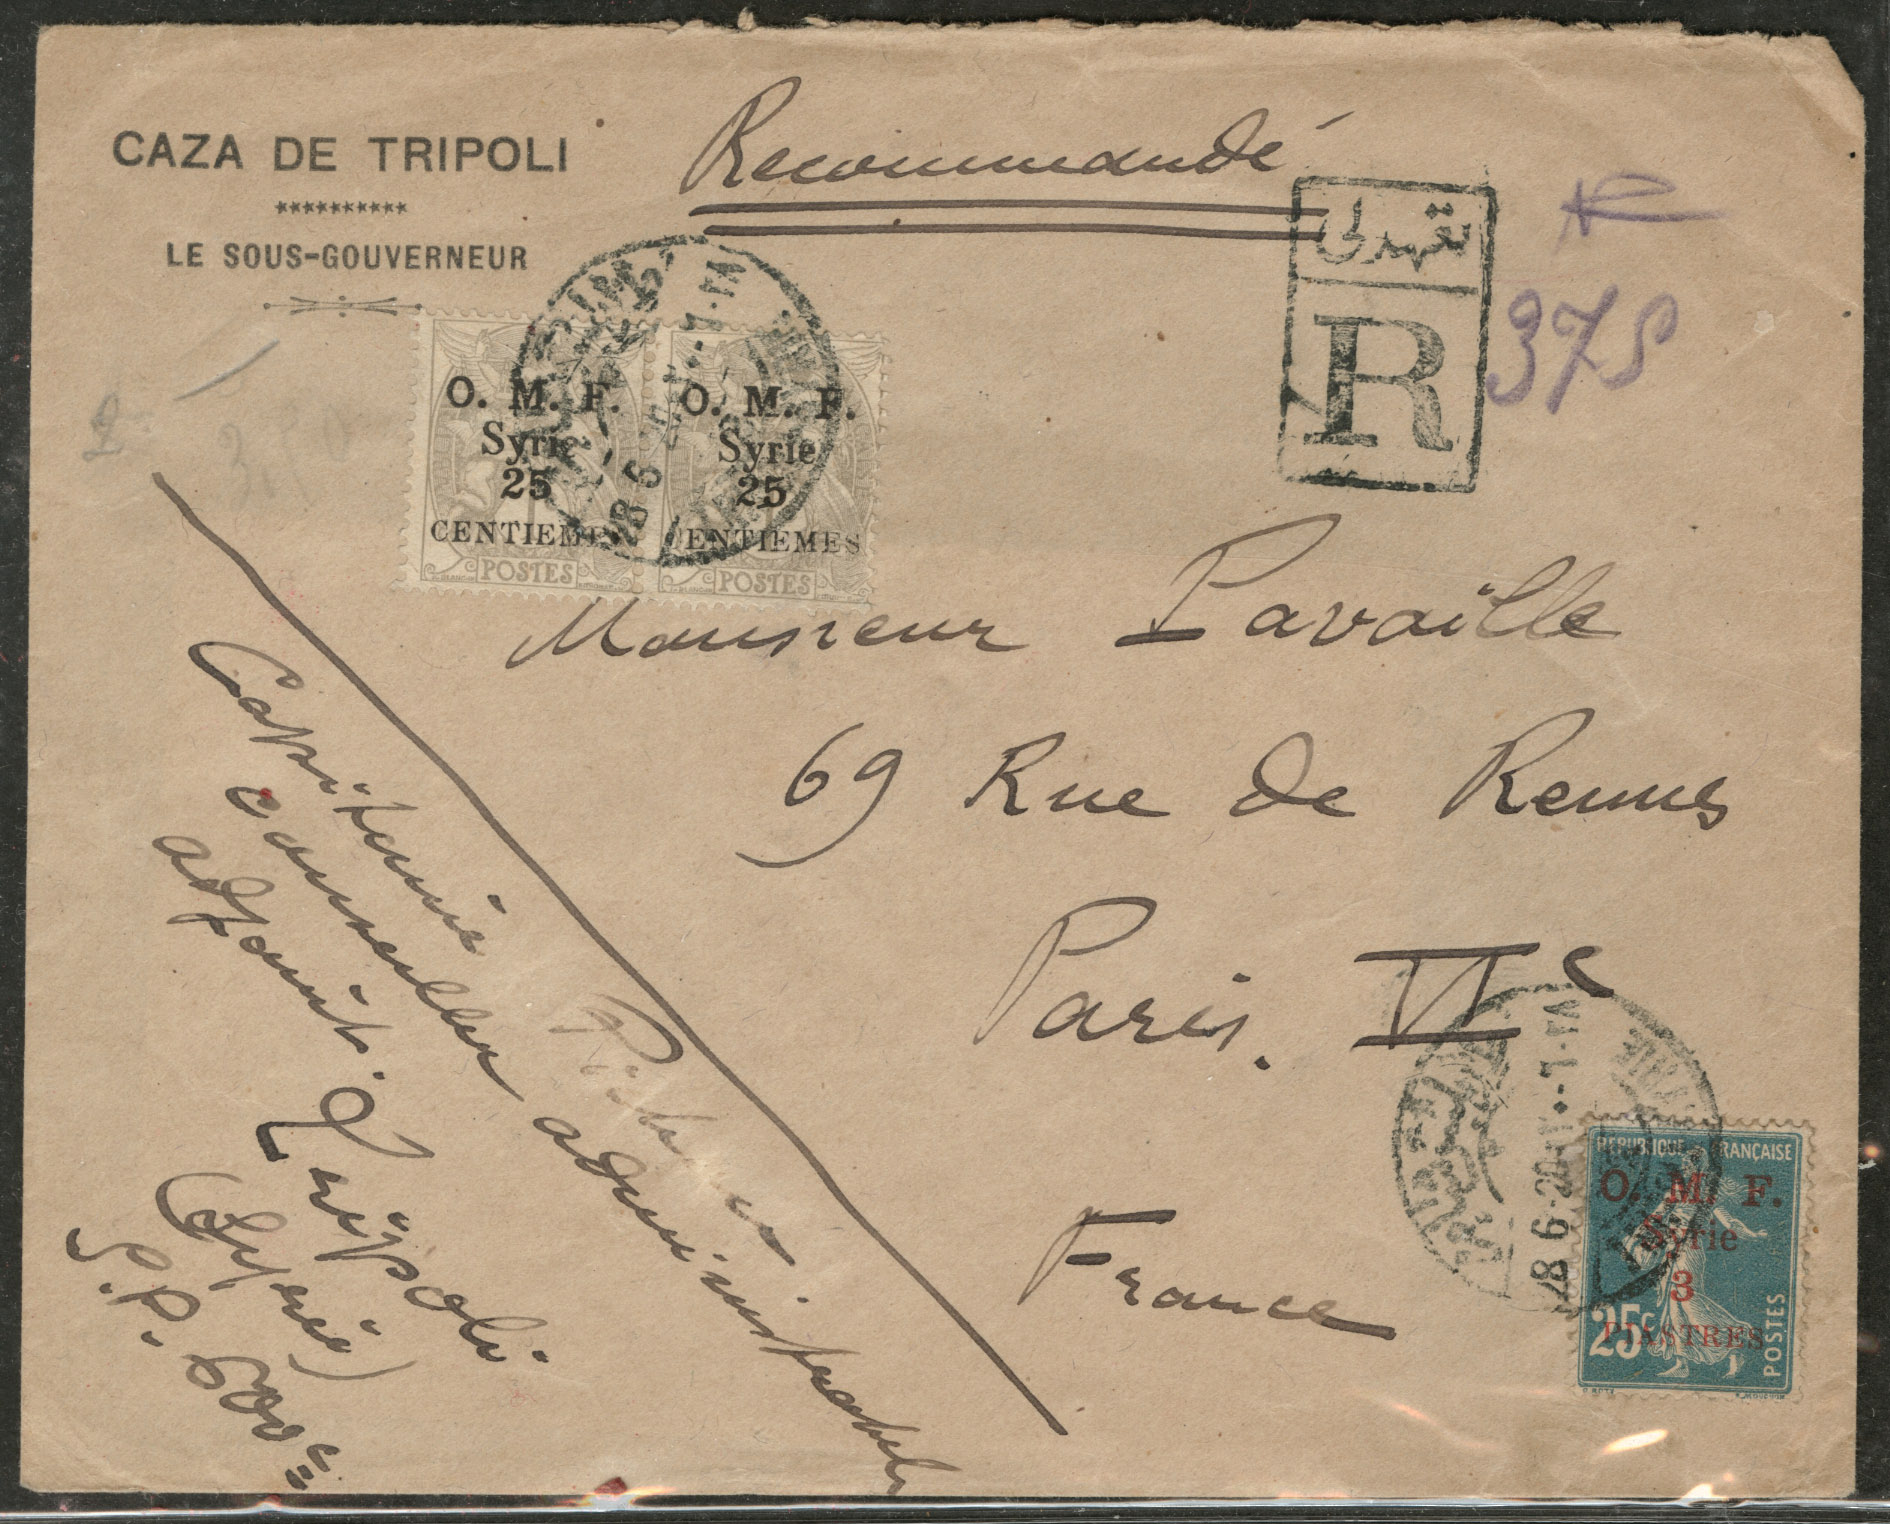 CAZA DE TRIPOLI
**********
LE SOUS-GOUVERNEUR
Recommandé
تعهدلى
R
375
O. M. F.
Syrie
25
CENTIEMES
POSTES
O. M. F.
Syrie
25
CENTIEMES
POSTES
28 6 20
Monsieur Pavaille
69 Rue de Rennes
Paris. VIe
France
Capitaine
conseiller administratif
adjoint.
Tripoli
(Syrie)
S.P. 600c
28 6-20
REPUBLIQUE FRANÇAISE
O. M. F.
Syrie
3
PIASTRES
25c
POSTES